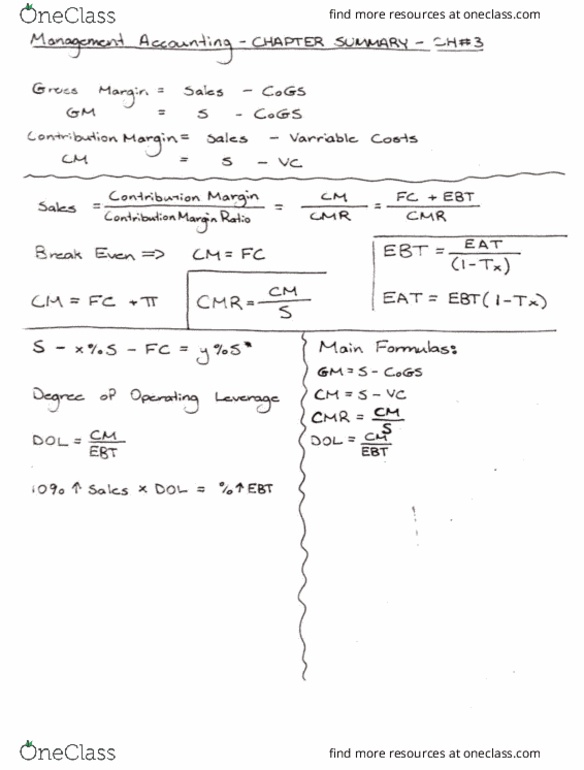 OneClass
find more resources at oneclass.com
Management Accounting - CHAPTER SUMMARY - CH#3
Gross Margin = Sales - CoGS
GM = S - CoGS
Contribution Margin = Sales - Varriable Costs
CM = S - VC
Sales = Contribution Margin / Contribution Margin Ratio = CM / CMR = FC + EBT / CMR
Break Even => CM = FC
EBT = EAT / (1-Tx)
CM = FC + π
CMR = CM / S
EAT = EBT(1-Tx)
S - x%S - FC = y%S*
Degree of Operating Leverage
DOL = CM / EBT
10% ↑ Sales x DOL = %↑EBT
Main Formulas:
GM = S - CoGS
CM = S - VC
CMR = CM / S
DOL = CM / EBT
OneClass
find more resources at oneclass.com